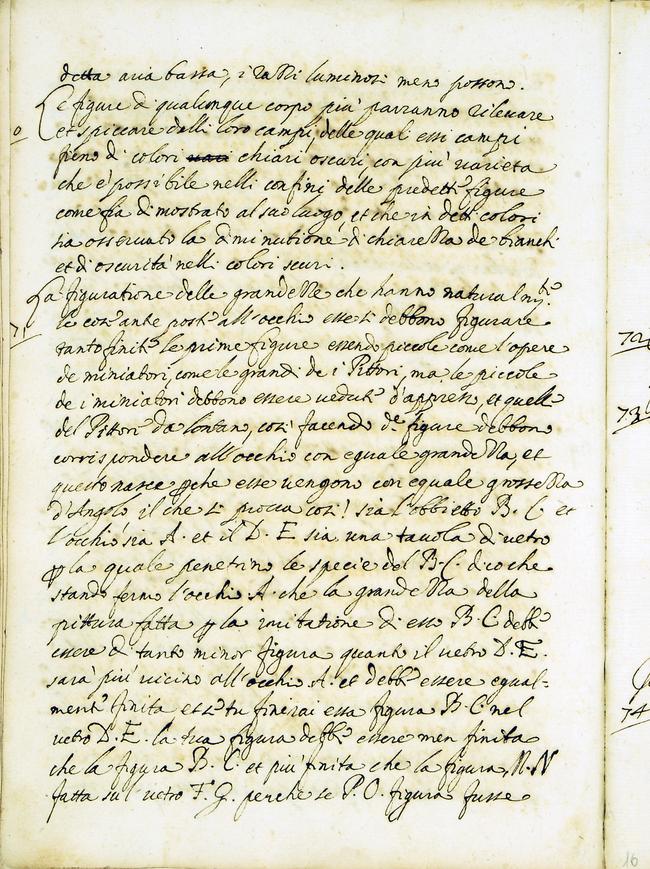 detta aria bassa, i razzi luminosi meno possono.
Le figure di qualunque corpo più parranno rilevare
et spiccare dalli loro campi, delle quali essi campi
sieno di colori chiari oscuri con più varieta
che è possibile nelli confini delle predette figure
come fia dimostrato al suo luogo, et che in detti colori
sia osservato la diminutione di chiarezza de bianchi
et di oscurità nelli colori scuri.
La figuratione delle grandezze che hanno natural mte
le cose ante poste all'occhio esse si debbono figurare
tanto finite le prime figure essendo piccole come l'opere
de miniatori, come le grandi de i Pittori, ma le piccole
de i miniatori debbono essere vedute d'appresso, et quelle
del Pittore da lontano, cosi facendo de figure debbono
corrispondere all'occhio con eguale grandezza, et
questo nasce perche esse vengono con eguale grossezza
d'Angolo, il che si prova cosi! sia l'obbietto B. C. et
l'occhio sia A. et il D. E sia una tavola di vetro
per la quale penetrino le specie del B. C. dico che
stando fermo l'occhio A. che la grandezza della
pittura fatta per la imitatione di esso B C debbe
essere di tanto minor figura quanto il vetro D. E.
sarà più vicino all'occhio A. et debbe essere egual=
mente finita et se tu finerai essa figura B. C. nel
vetro D. E. la tua figura debbe essere men finita
che la figura B. C. et più finita che la figura, M. N
fatta sul vetro F. G. perche se P. O. figura fusse
70
71
72
73
74
16